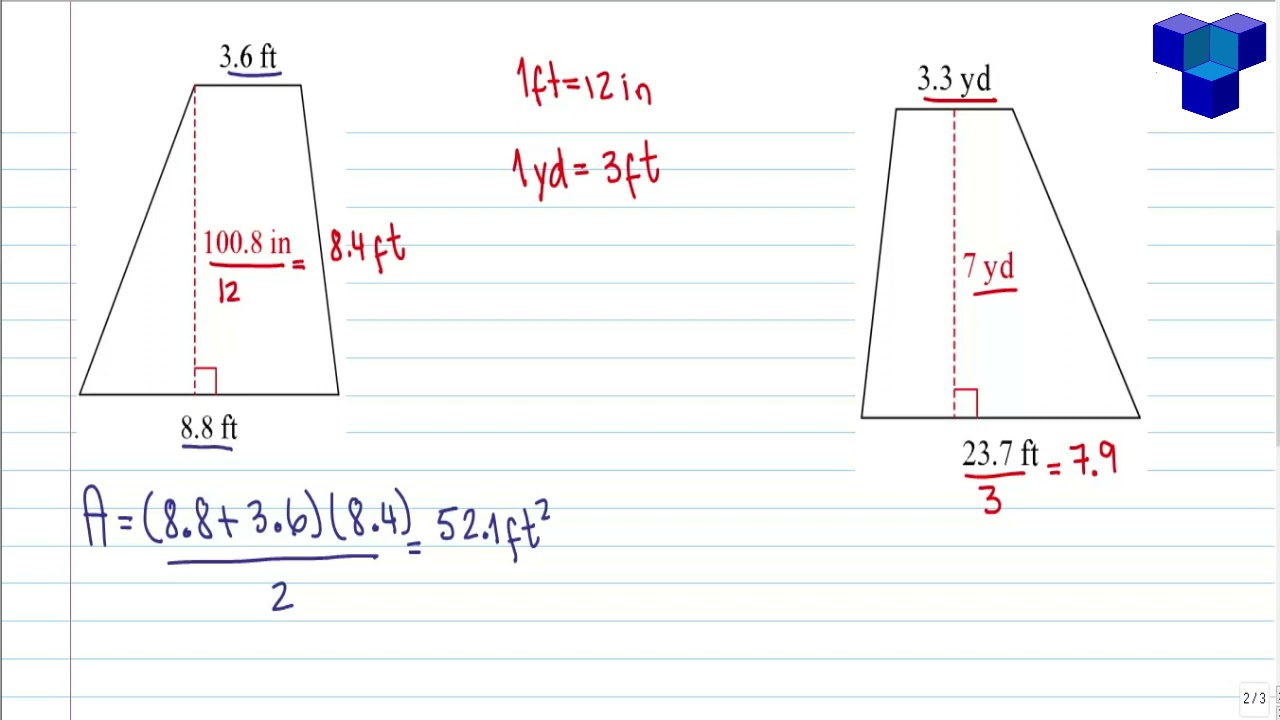 3.6 ft
100.8 in = 8.4 ft
12
8.8 ft
A = (8.8 + 3.6)(8.4) = 52.1 ft²
2
1ft = 12 in
1 yd = 3 ft
3.3 yd
7 yd
23.7 ft = 7.9
3
2/3